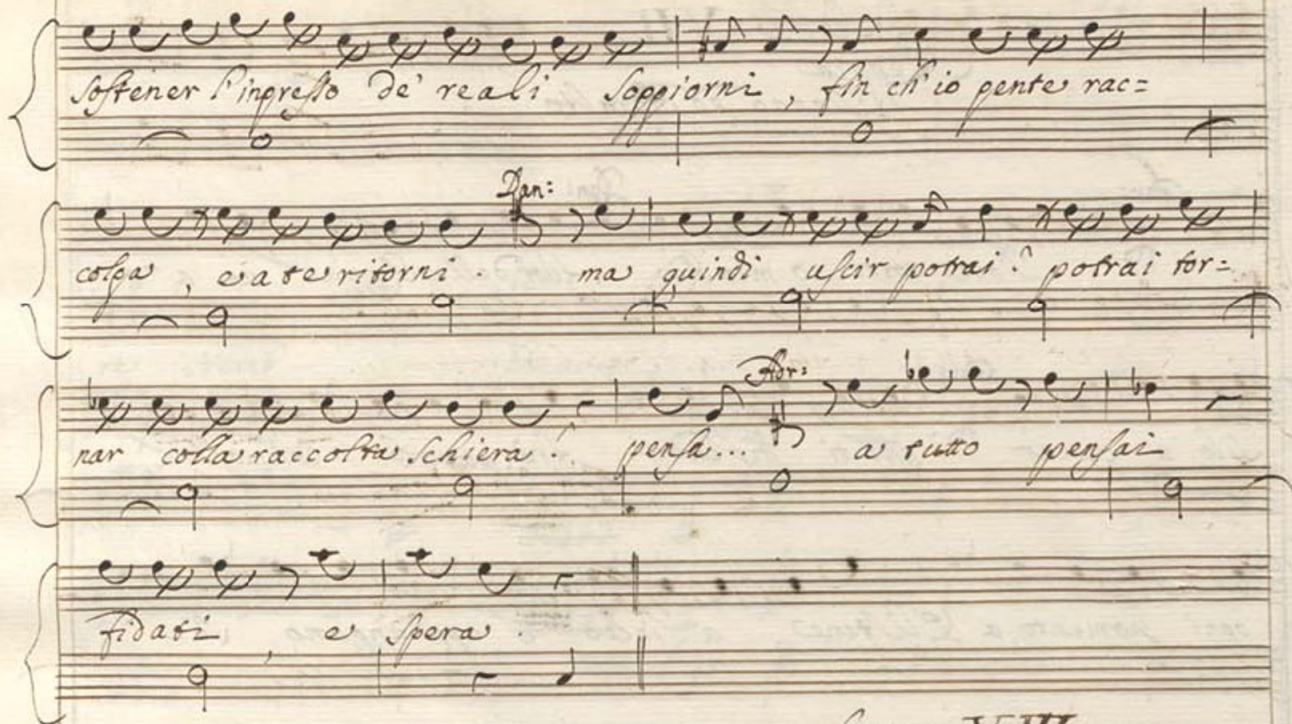 sostener l'ingresso de' reali soggiorni, fin ch'io gente rac=
Dan:
colga, e a te ritorni. ma quindi uscir potrai? potrai tor=
Adr:
nar colla raccolta schiera? pensa... a tutto pensai
fidati, e spera.
VIII